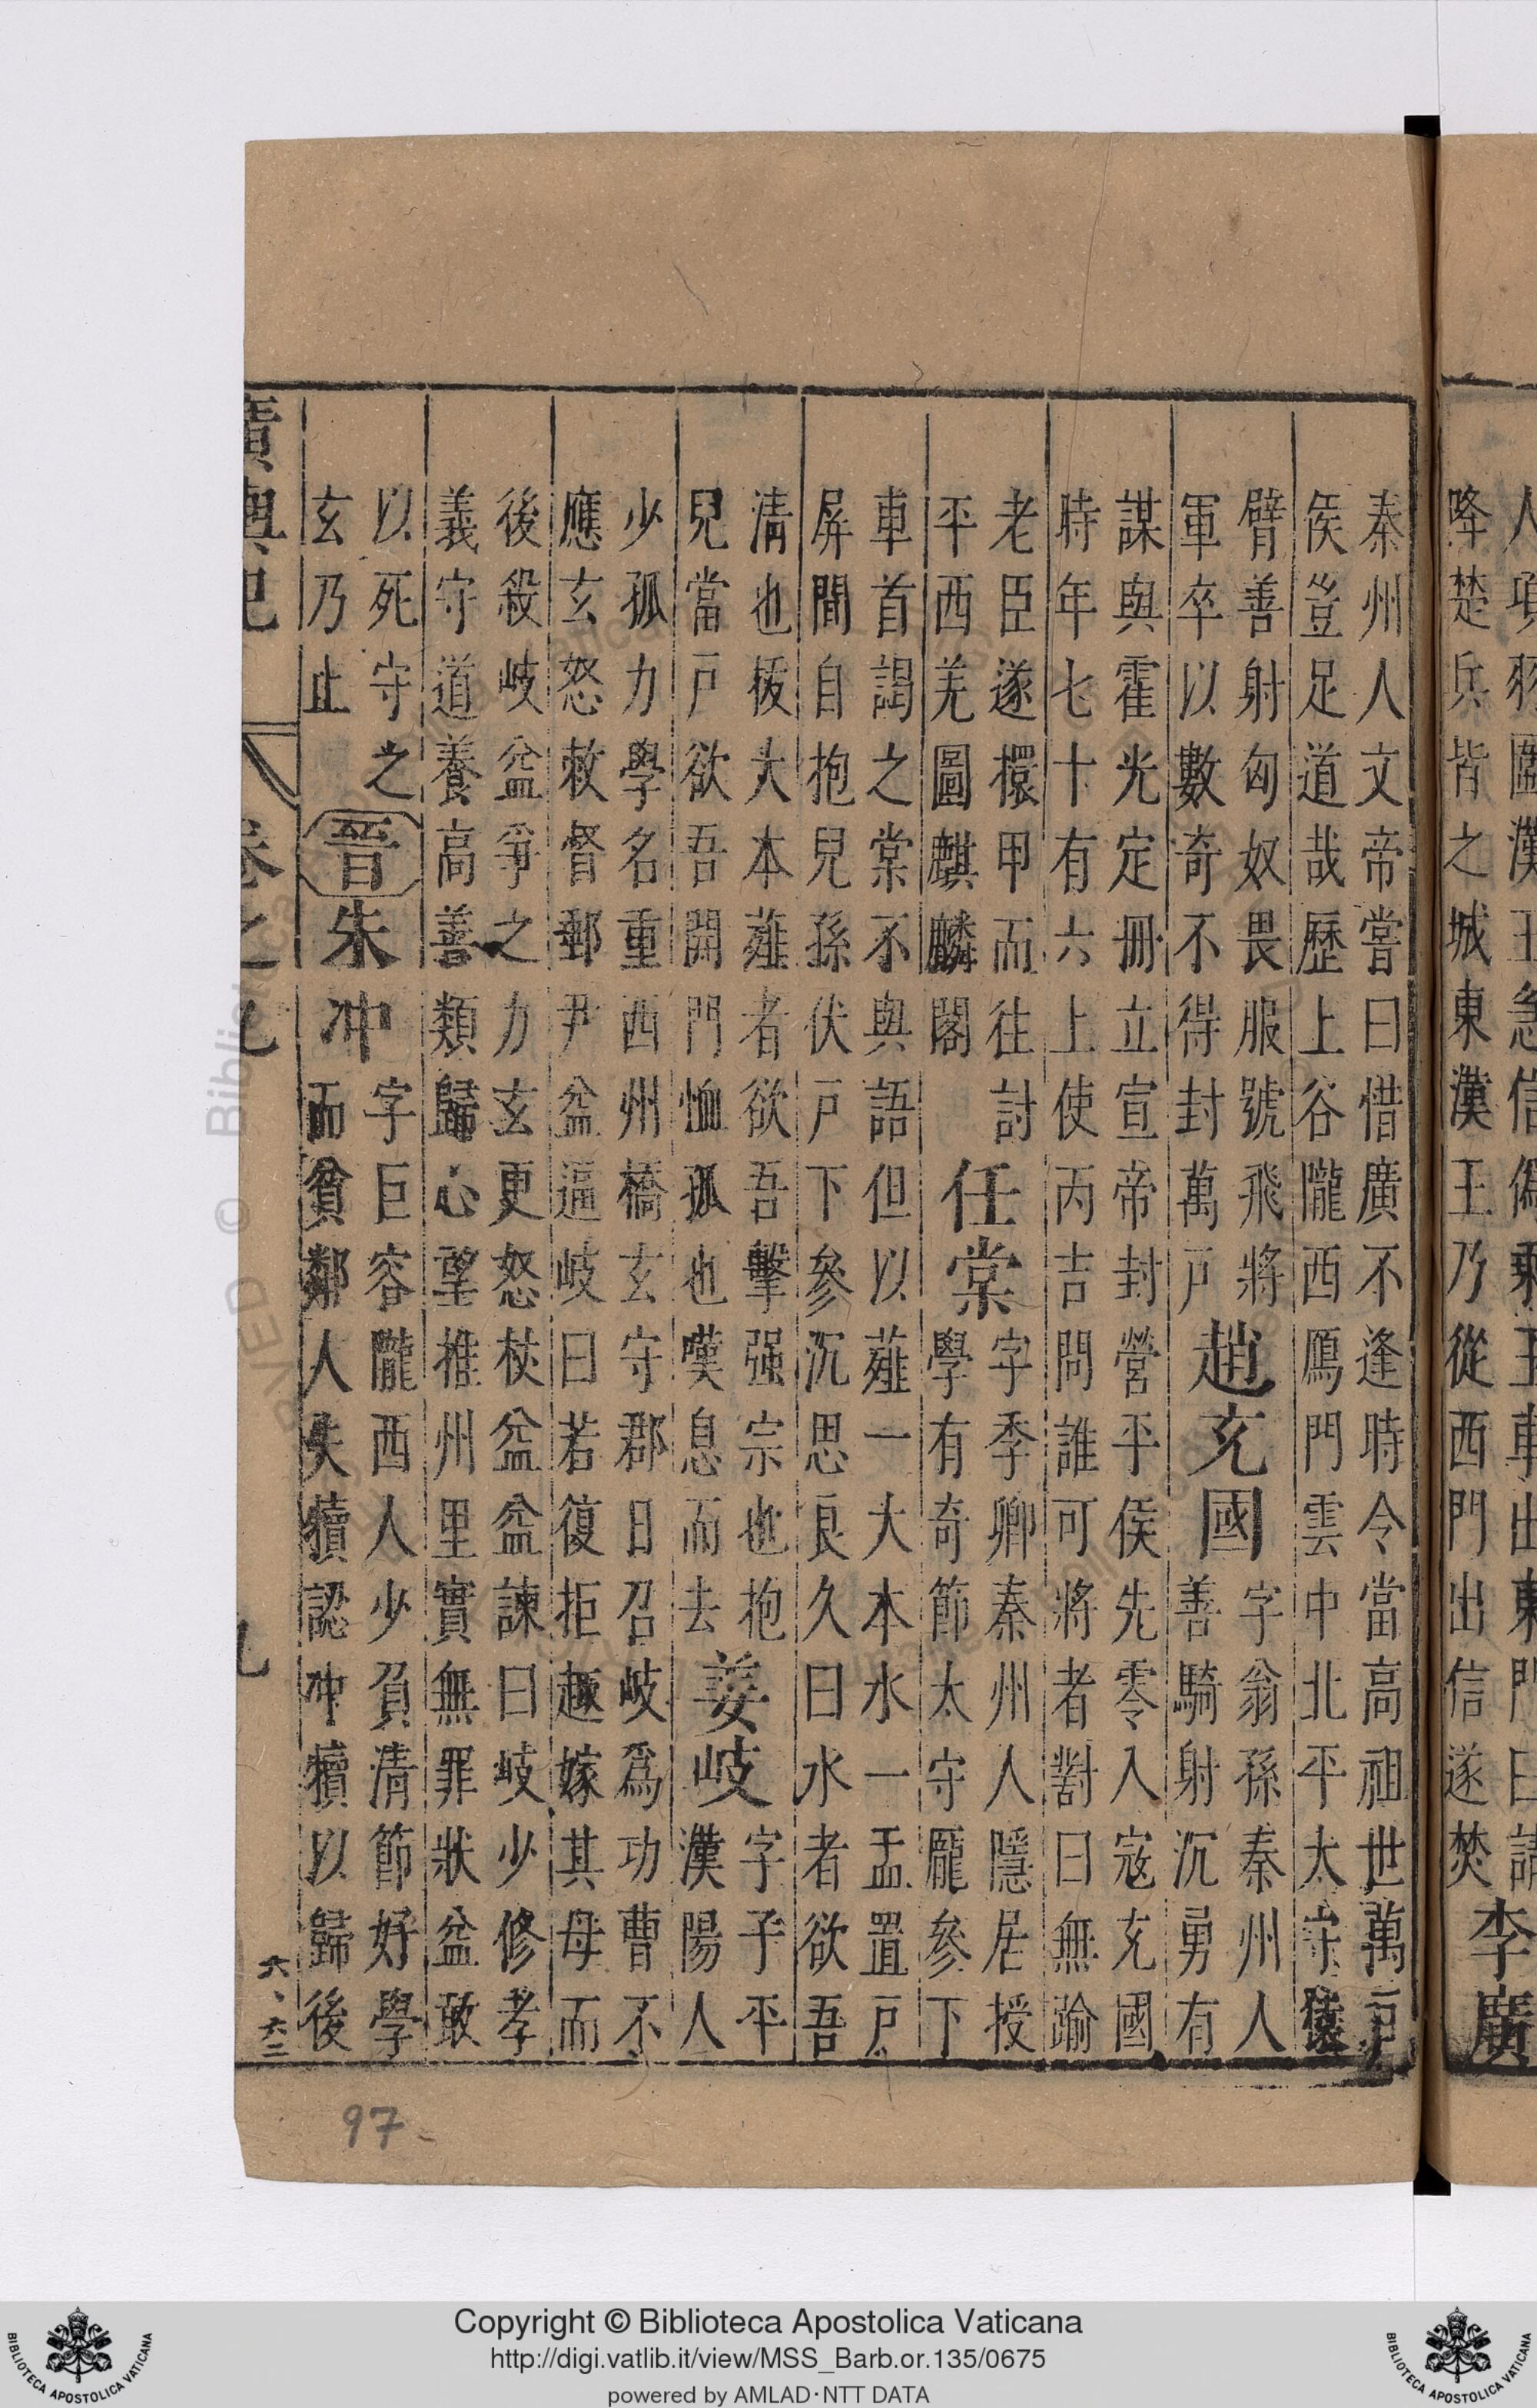 人項羽圍漢王急信僞乘王車出東門曰請
降楚兵皆之城東漢王乃從西門出信遂焚
李廣
秦州人文帝嘗曰惜廣不逢時令當高祖世萬戸
侯豈足道哉歷上谷隴西鴈門雲中北平太守猿
臂善射匈奴畏服號飛將
軍卒以數奇不得封萬戸
趙充國
字翁孫秦州人
善騎射沉勇有
謀與霍光定册立宣帝封營平侯先零入寇充國
時年七十有六上使丙吉問誰可將者對曰無踰
老臣遂擐甲而往討
平西羌圖麒麟閣
任棠
字季卿秦州人隱居授
學有奇節太守龐參下
車首謁之棠不與語但以薤一大本水一盂置戸
屏間自抱兒孫伏戸下參沉思良久曰水者欲吾
清也拔大本薤者欲吾擊强宗也抱
兒當戸欲吾開門恤孤也嘆息而去
姜岐
字子平
漢陽人
少孤力學名重西州橋玄守郡日召岐爲功曹不
應玄怒敕督郵尹益逼岐曰若復拒趣嫁其母而
後殺岐益爭之力玄更怒杖益益諫曰岐少修孝
義守道養高善類歸心望推州里實無罪狀益敢
以死守之
玄乃止
晉
朱冲
字巨容隴西人少負清節好學
而貧鄰人失犢認冲犢以歸後
廣輿記
卷之九
九
六、六二
97
© Biblioteca
Copyright © Biblioteca Apostolica Vaticana
http://digi.vatlib.it/view/MSS_Barb.or.135/0675
powered by AMLAD·NTT DATA
BIBLIOTECA APOSTOLICA VATICANA
BIBLIOTECA APOSTOLICA VATICANA